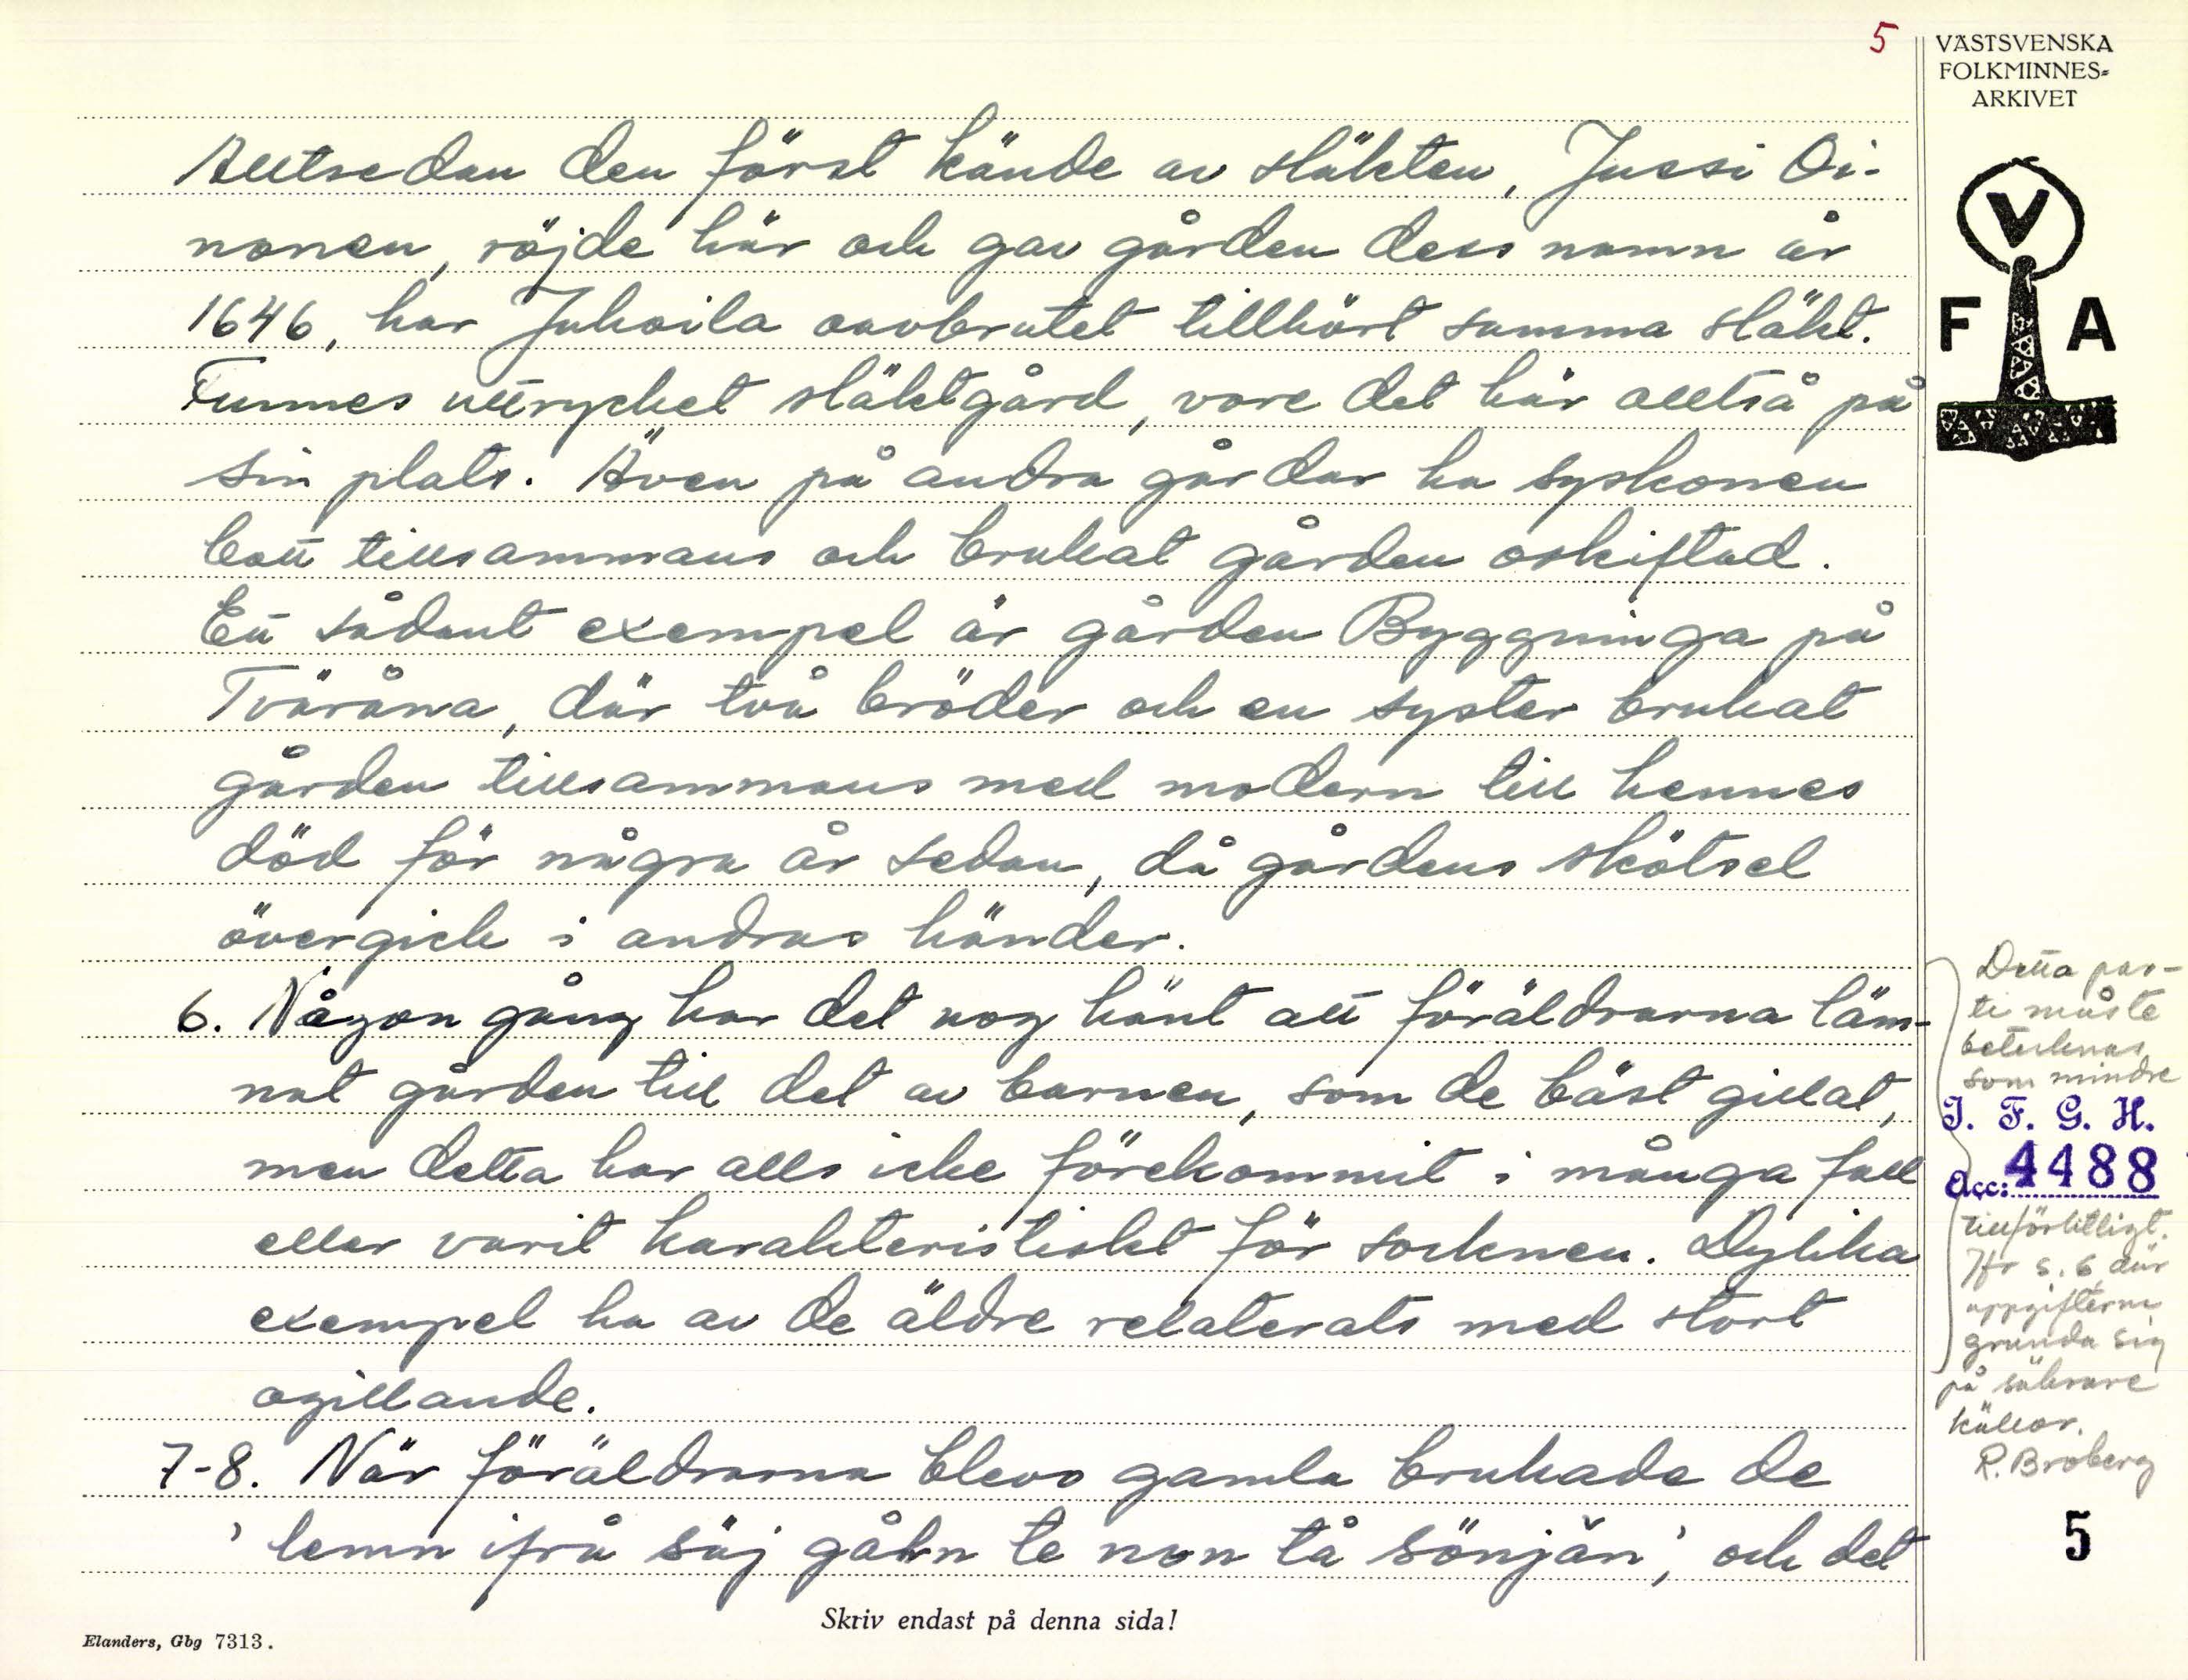 5
VÄSTSVENSKA
FOLKMINNES=
ARKIVET
V
F A
Alltsedan den först kände av släkten, Jussi Oi-
nonen, röjde här och gav gården dess namn år
1646, har Juhoila oavbrutet tillhört samma släkt.
Funnes uttrycket släktgård, vore det här alltså på
sin plats. Även på andra gårdar ha syskonen
bott tillsammans och brukat gården oskiftad.
Ett sådant exempel är gården Byggninga på
Tväråna, där två bröder och en syster brukat
gården tillsammans med modern till hennes
död för några år sedan, då gårdens skötsel
övergick i andras händer.
6. Någon gång har det nog hänt att föräldrarna läm-
nat gården till det av barnen, som de bäst gillat,
men detta har alls icke förekommit i många fall
eller varit karakteristiskt för socknen. Dylika
exempel ha av de äldre relaterats med stort
ogillande.
7-8. När föräldrarna blevo gamla brukade de
'lemn ifrå säj gåhn te non tå sönjän', och det
Detta par-
ti måste
betecknas
som mindre
I. F. G. H.
Acc: 4488
tillförlitligt.
Jfr s. 6 där
uppgifterna
grunda sig
på säkrare
källor.
R. Broberg
5
Skriv endast på denna sida!
Elanders, Gbg 7313.